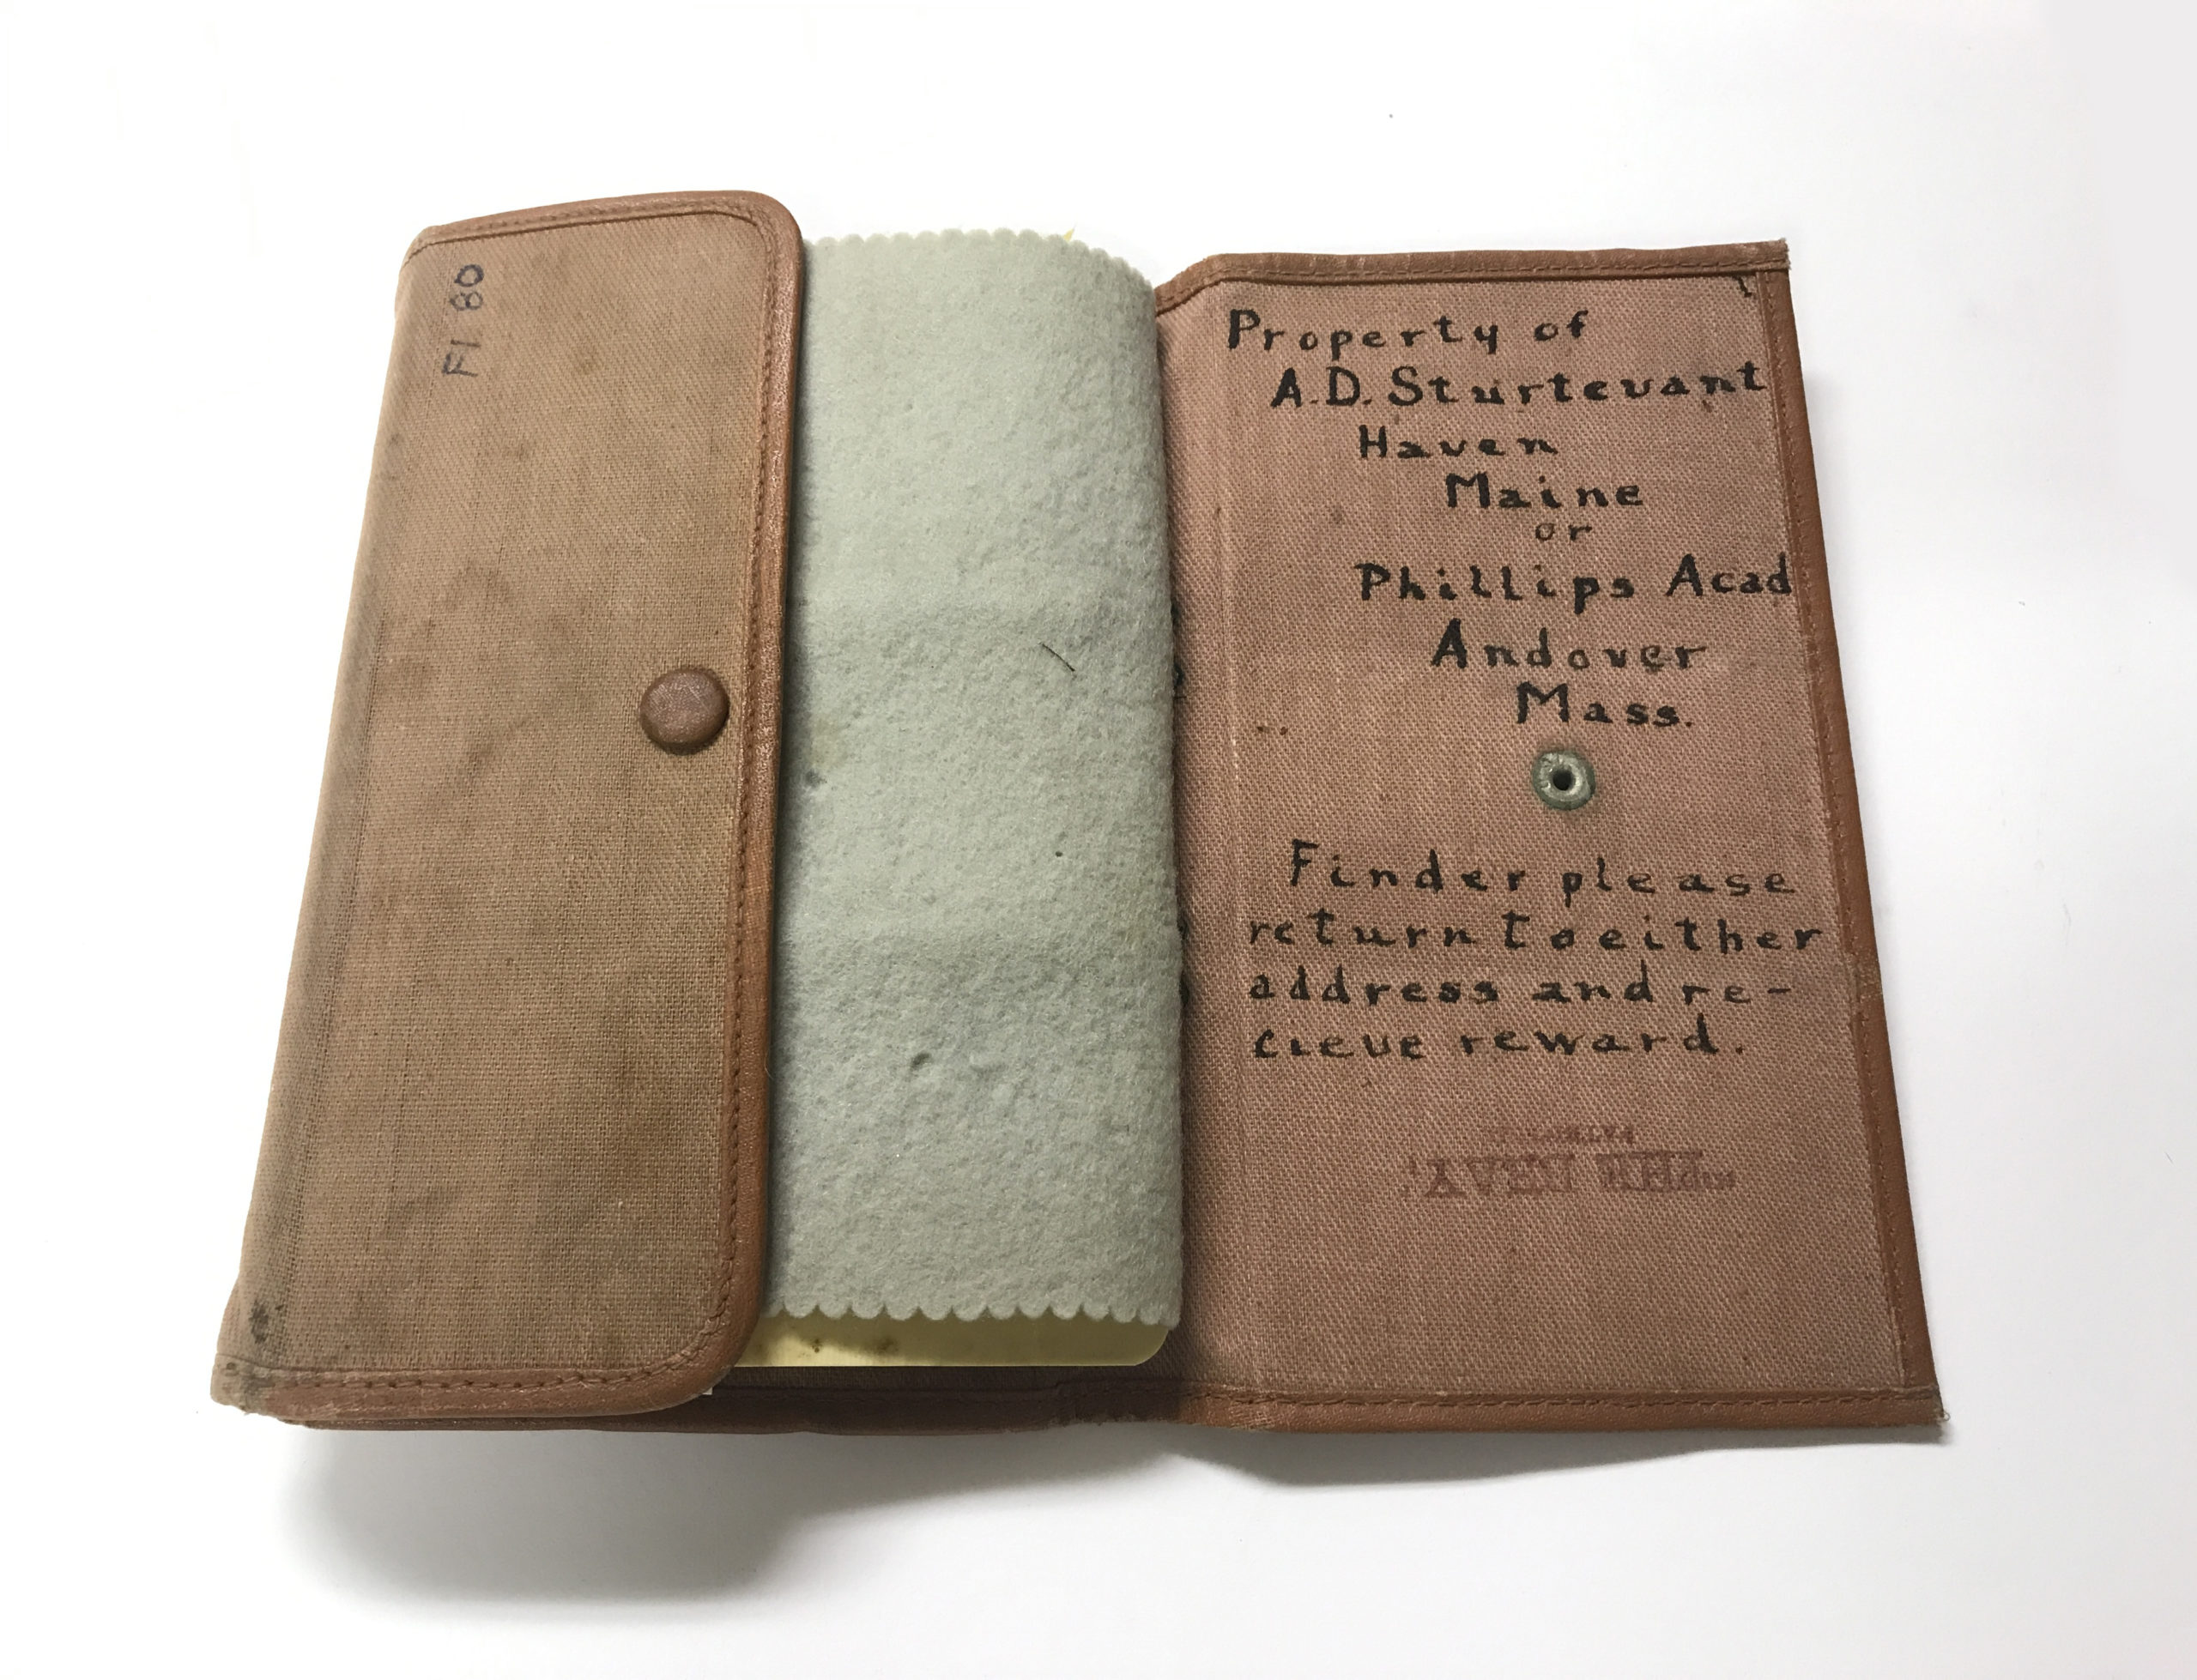 FI 80
Property of
A.D. Sturtevant
Haven
Maine
or
Phillips Acad
Andover
Mass.
Finder please
return to either
address and re-
cieve reward.